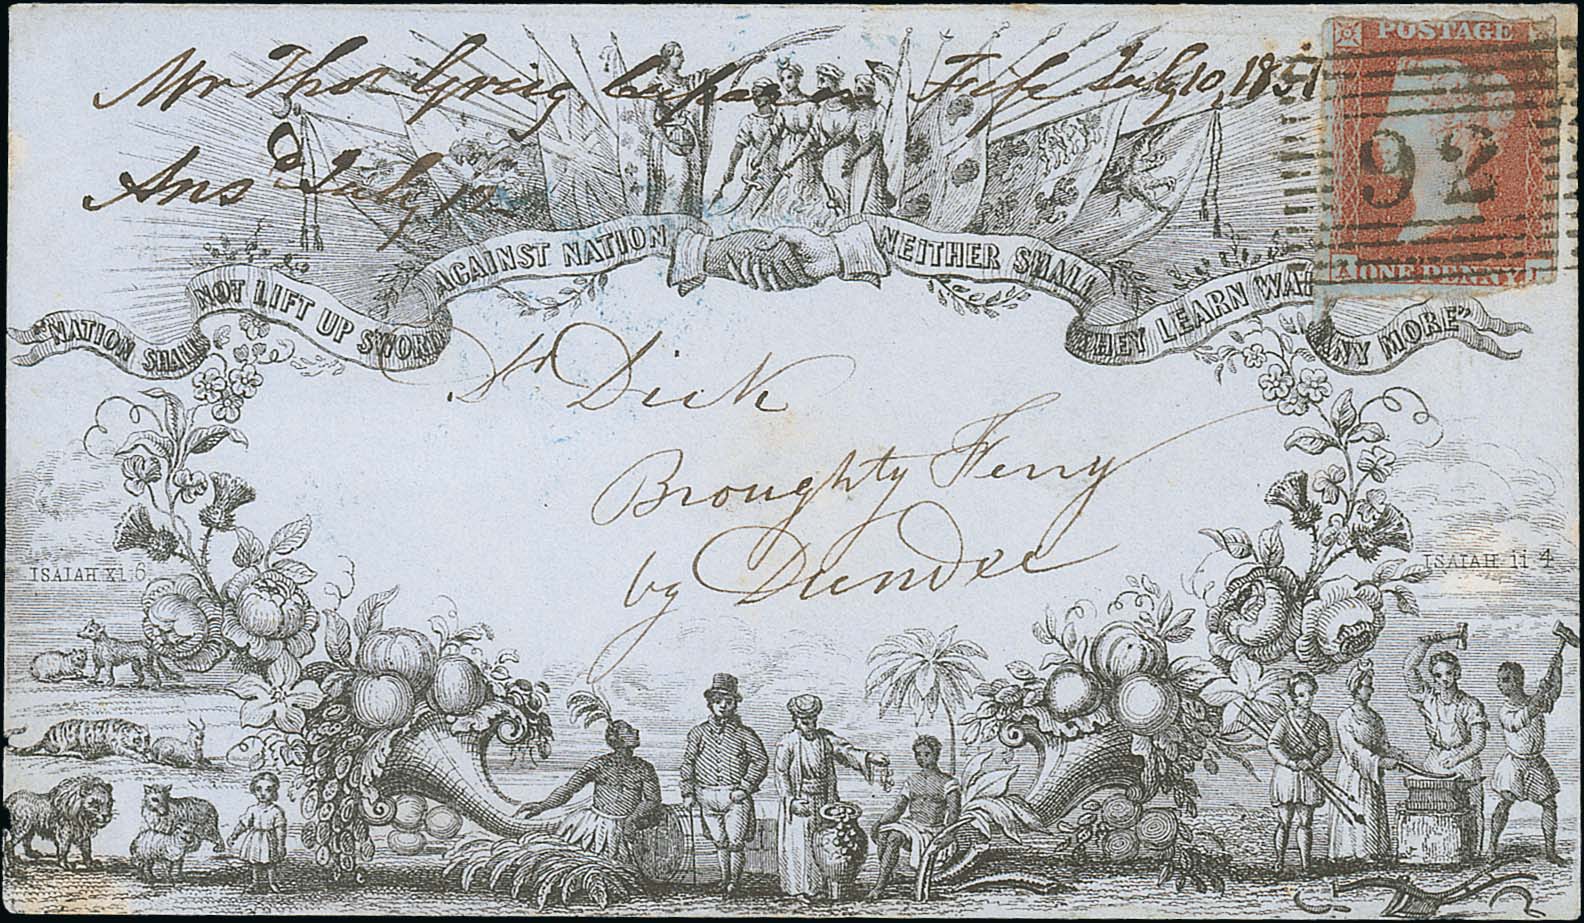 Mr Thos Greig, Fife July 10, 1851
Ansd July 12
POSTAGE
92
ONE PENNY
"NATION SHALL NOT LIFT UP SWORD AGAINST NATION NEITHER SHALL THEY LEARN WAR ANY MORE"
Dr Dick
Broughty Ferry
by Dundee
ISAIAH XI.6
ISAIAH. 11 4